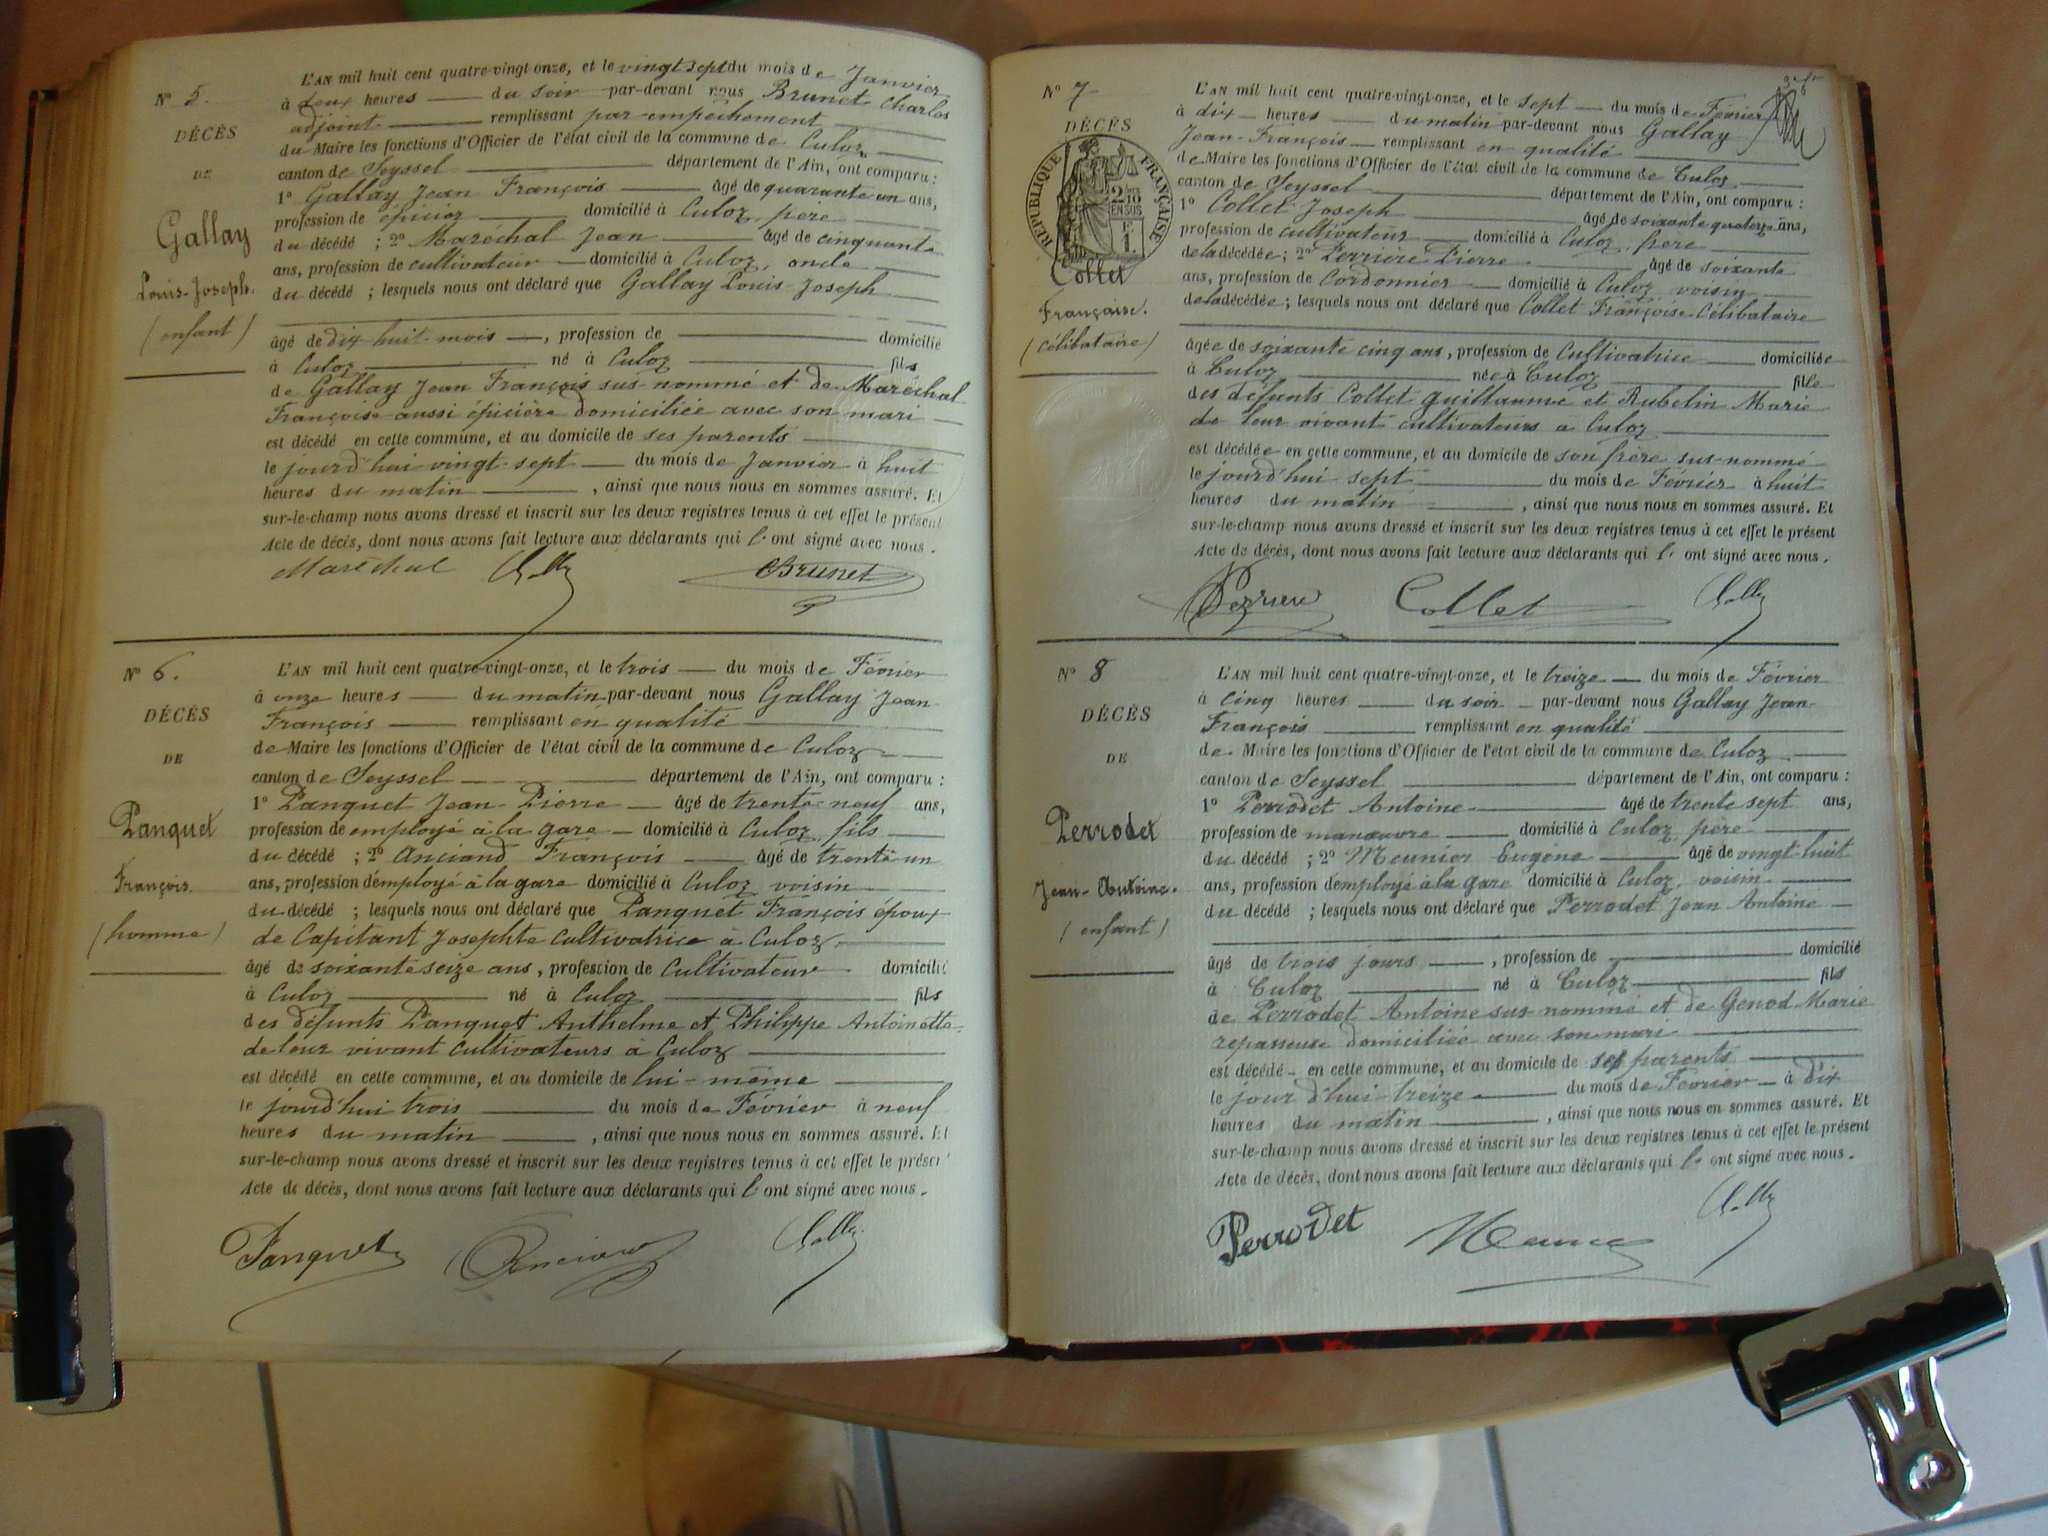 N° 5.
DÉCÈS
DE
Gallay
Louis-Joseph.
(enfant)
L'AN mil huit cent quatre-vingt-onze, et le vingt sept du mois de Janvier
à deux heures du soir par-devant nous Brunet Charles
adjoint remplissant par empêchement
du Maire les fonctions d'Officier de l'état civil de la commune de Culoz
canton de Seyssel département de l'Ain, ont comparu :
1° Gallay Jean François âgé de quarante un ans,
profession de épicier domicilié à Culoz, père
du décédé ; 2° Maréchal Jean âgé de cinquante
ans, profession de cultivateur domicilié à Culoz, oncle
du décédé ; lesquels nous ont déclaré que Gallay Louis-Joseph
âgé de dix huit mois, profession de domicilié
à Culoz né à Culoz fils
de Gallay Jean François sus-nommé et de Maréchal
Françoise aussi épicière domiciliée avec son mari
est décédé en cette commune, et au domicile de ses parents
le jourd'hui vingt-sept du mois de Janvier à huit
heures du matin, ainsi que nous nous en sommes assuré. Et
sur-le-champ nous avons dressé et inscrit sur les deux registres tenus à cet effet le présent
Acte de décès, dont nous avons fait lecture aux déclarants qui l' ont signé avec nous.
Maréchal Gallay Brunet
N° 6.
DÉCÈS
DE
Panquet
François.
(homme)
L'AN mil huit cent quatre-vingt-onze, et le trois du mois de Février
à onze heures du matin par-devant nous Gallay Jean-
François remplissant en qualité
de Maire les fonctions d'Officier de l'état civil de la commune de Culoz
canton de Seyssel département de l'Ain, ont comparu :
1° Panquet Jean-Pierre âgé de trente-neuf ans,
profession de employé à la gare domicilié à Culoz, fils
du décédé ; 2° Anciand François âgé de trente un
ans, profession d'employé à la gare domicilié à Culoz, voisin
du décédé ; lesquels nous ont déclaré que Panquet François époux
de Capitant Josephte cultivatrice à Culoz
âgé de soixante seize ans, profession de Cultivateur domicilié
à Culoz né à Culoz fils
des défunts Panquet Anthelme et Philippe Antoinette
de leur vivant cultivateurs à Culoz
est décédé en cette commune, et au domicile de lui-même
le jourd'hui trois du mois de Février à neuf
heures du matin, ainsi que nous nous en sommes assuré. Et
sur-le-champ nous avons dressé et inscrit sur les deux registres tenus à cet effet le présent
Acte de décès, dont nous avons fait lecture aux déclarants qui l' ont signé avec nous.
Panquet Anciand Gallay
N° 7
DÉCÈS
RÉPUBLIQUE FRANÇAISE
2/10 EN SUS
1 F.
Collet
Françoise.
(célibataire)
L'AN mil huit cent quatre-vingt-onze, et le sept du mois de Février
à dix heures du matin par-devant nous Gallay
Jean-François remplissant en qualité
de Maire les fonctions d'Officier de l'état civil de la commune de Culoz
canton de Seyssel département de l'Ain, ont comparu :
1° Collet Joseph âgé de soixante quatorze ans,
profession de cultivateur domicilié à Culoz, frère
de la décédée ; 2° Perrière Pierre âgé de soixante
ans, profession de Cordonnier domicilié à Culoz voisin
de la décédée ; lesquels nous ont déclaré que Collet Françoise Célibataire
âgée de soixante cinq ans, profession de Cultivatrice domiciliée
à Culoz née à Culoz fille
des défunts Collet Guillaume et Rubelin Marie
de leur vivant cultivateurs à Culoz
est décédée en cette commune, et au domicile de son frère sus-nommé
le jourd'hui sept du mois de Février à huit
heures du matin, ainsi que nous nous en sommes assuré. Et
sur-le-champ nous avons dressé et inscrit sur les deux registres tenus à cet effet le présent
Acte de décès, dont nous avons fait lecture aux déclarants qui l' ont signé avec nous.
Collet Gallay
N° 8
DÉCÈS
DE
Perrodet
Jean-Antoine.
(enfant)
L'AN mil huit cent quatre-vingt-onze, et le treize du mois de Février
à cinq heures du soir par-devant nous Gallay Jean-
François remplissant en qualité
de Maire les fonctions d'Officier de l'état civil de la commune de Culoz
canton de Seyssel département de l'Ain, ont comparu :
1° Perrodet Antoine âgé de trente sept ans,
profession de manœuvre domicilié à Culoz, père
du décédé ; 2° Meunier Eugène âgé de vingt-huit
ans, profession d'employé à la gare domicilié à Culoz, voisin
du décédé ; lesquels nous ont déclaré que Perrodet Jean Antoine
âgé de trois jours, profession de domicilié
à Culoz né à Culoz fils
de Perrodet Antoine sus-nommé et de Genod Marie
repasseuse domiciliée avec son mari
est décédé en cette commune, et au domicile de ses parents
le jourd'hui treize du mois de Février à dix
heures du matin, ainsi que nous nous en sommes assuré. Et
sur-le-champ nous avons dressé et inscrit sur les deux registres tenus à cet effet le présent
Acte de décès, dont nous avons fait lecture aux déclarants qui l' ont signé avec nous.
Perrodet Gallay